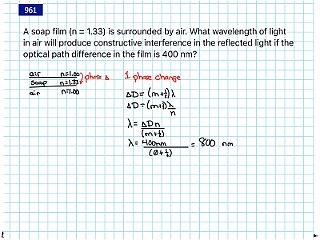 961
A soap film (n = 1.33) is surrounded by air. What wavelength of light
in air will produce constructive interference in the reflected light if the
optical path difference in the film is 400 nm?
air n=1.00
soap n=1.33 } phase Δ
air n=1.00
1 phase change
ΔD = (m+½)λ
ΔD = (m+½)λ/n
λ = ΔDn/(m+½)
λ = 400nm/(0+½) = 800 nm